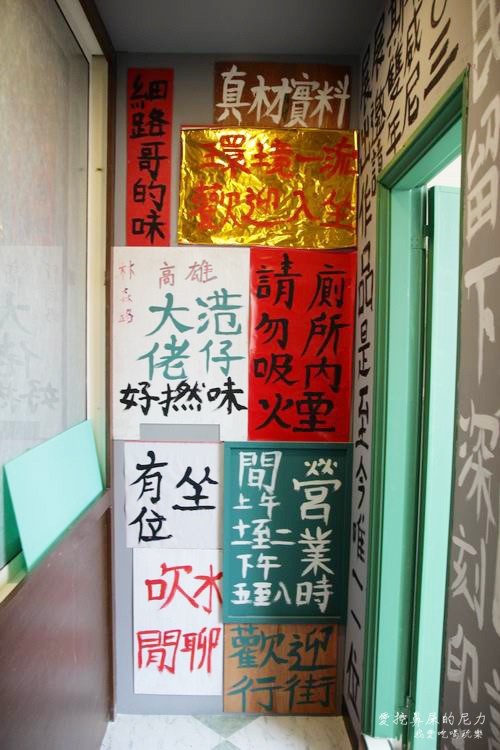 細路哥的味
真材實料
環境一流
歡迎入坐
林森路
高雄
港仔
大佬
好撚味
廁所內煙
請勿吸火
坐
有位
營業時
間
上午
十一至二
下午
五至八
吹水
閒聊
歡迎
行街
作品是至今唯一一位
雙年
威尼
〇三
留下深刻印
愛挖鼻屎的尼力